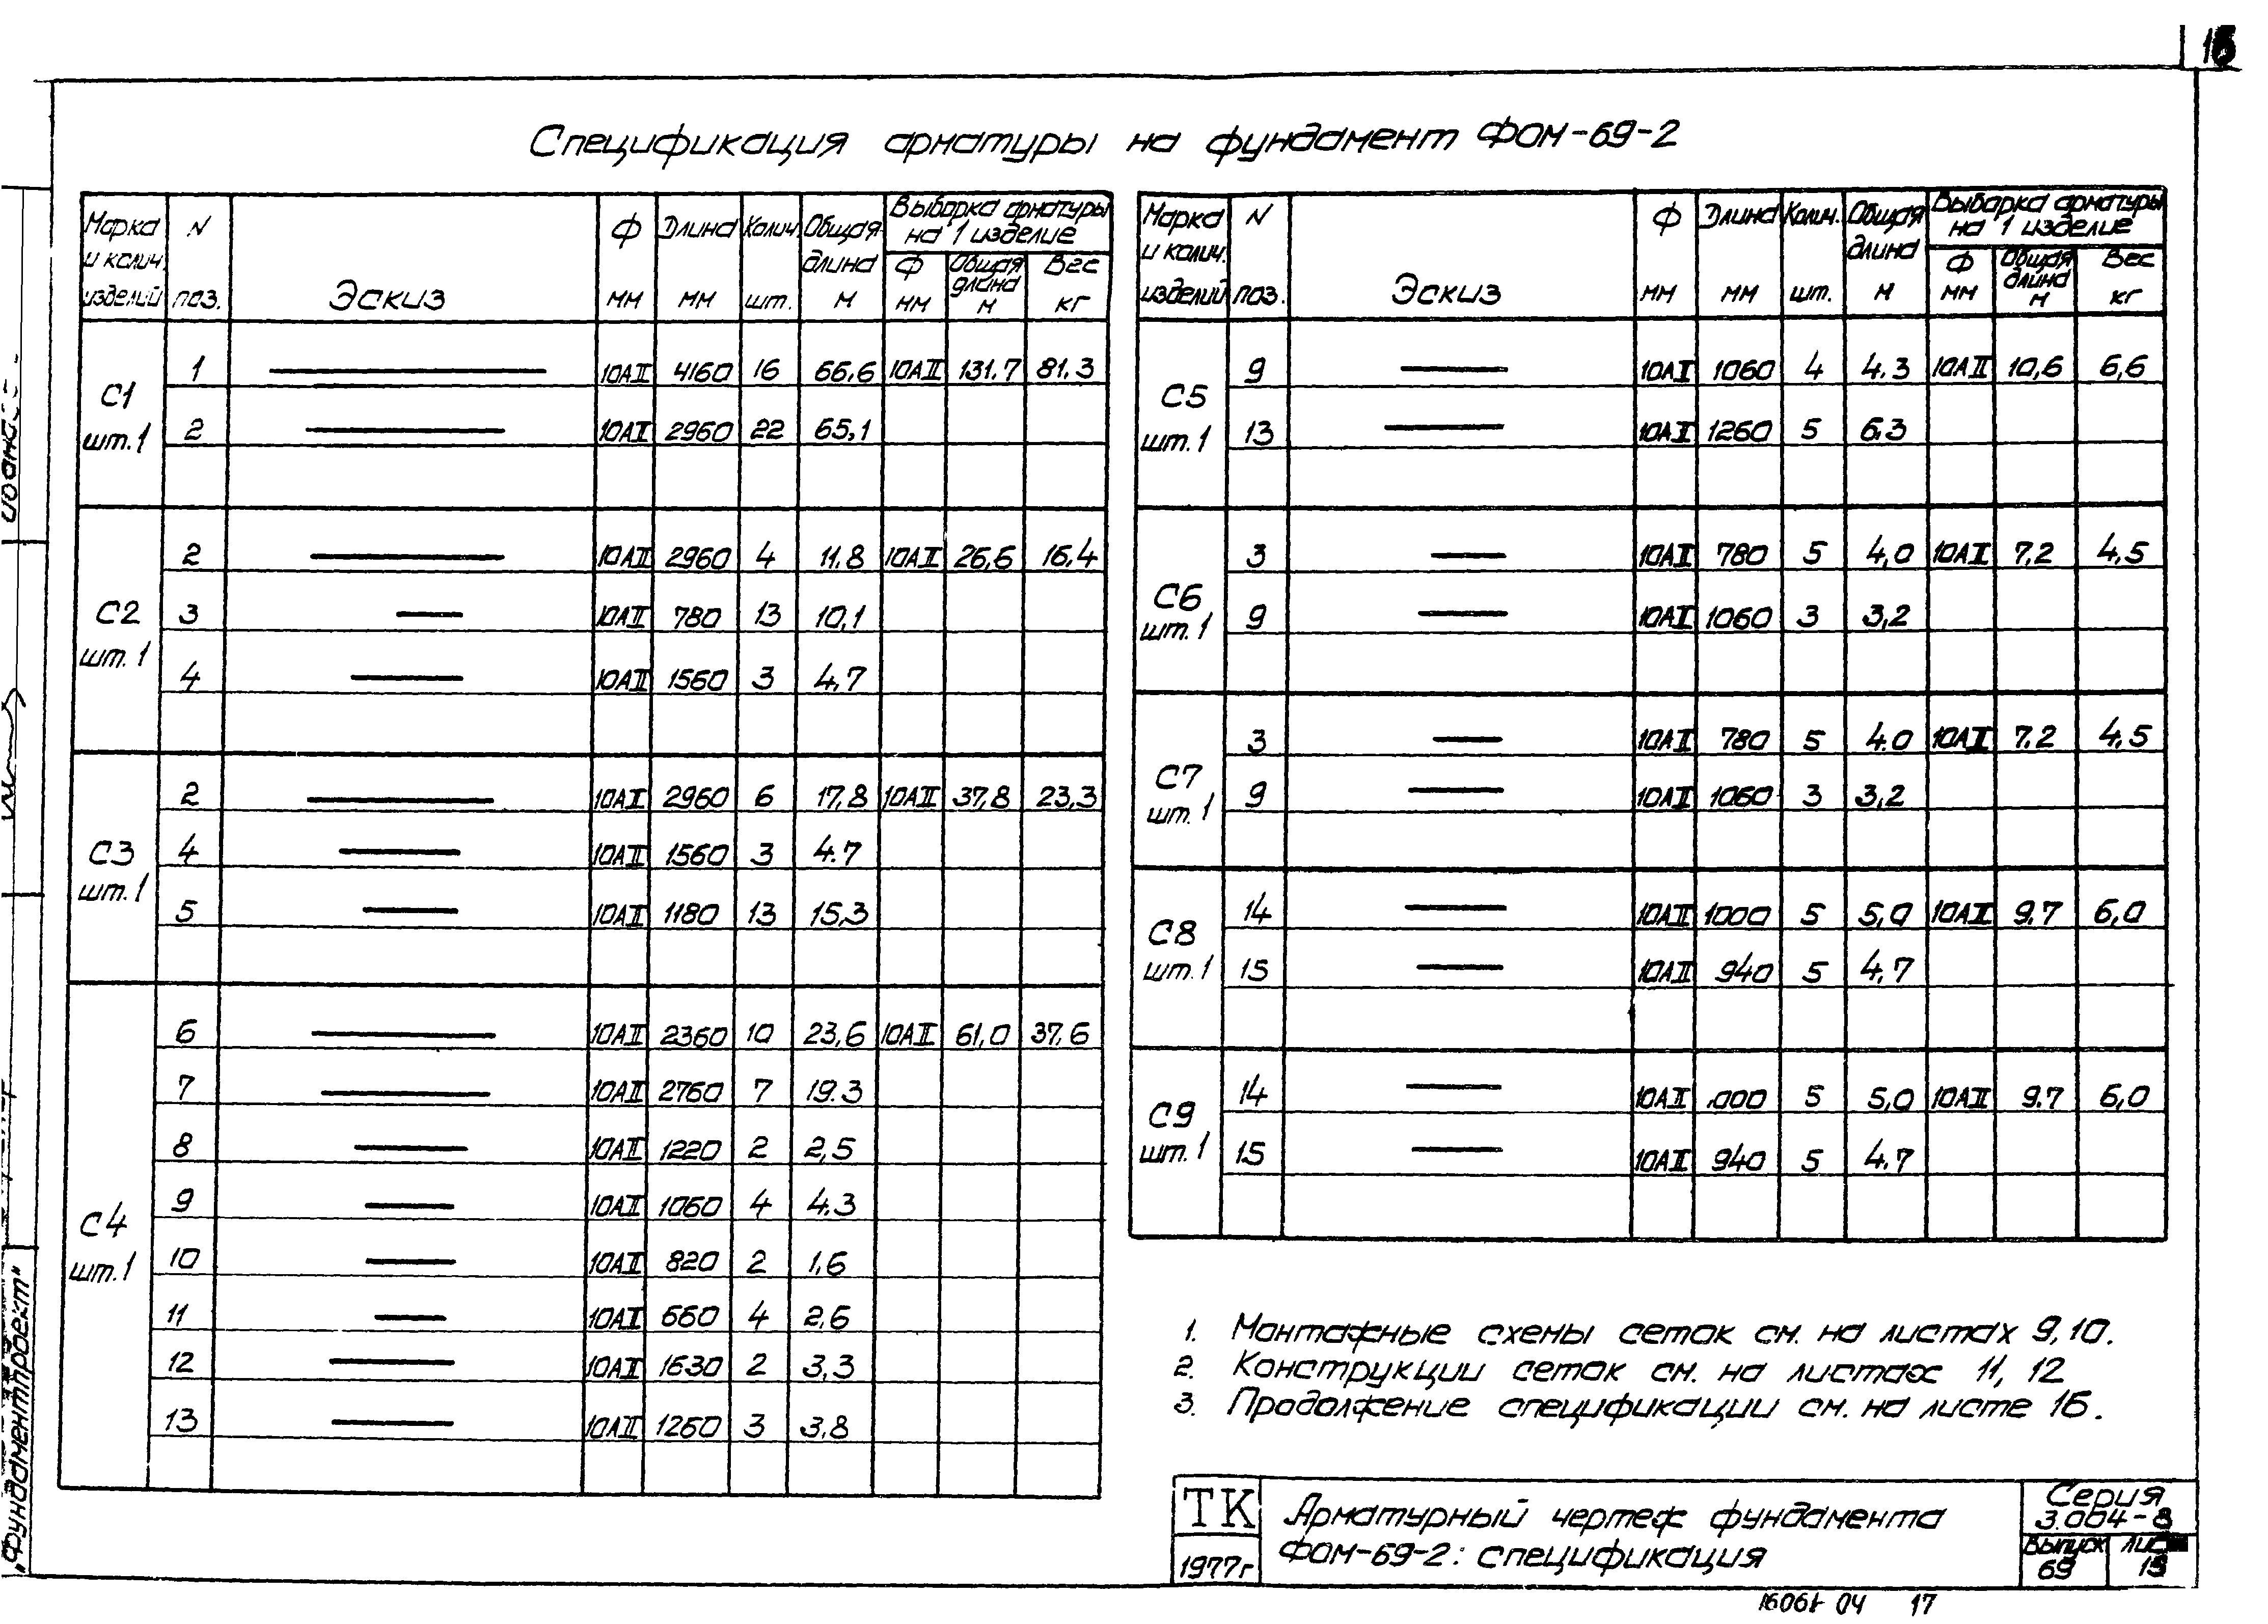 Спецификация арматуры на фундамент ФОМ-69-2
Марка и колич. изделий N поз. Эскиз Ф мм Длина мм Колич. шт. Общая длина м Выборка арматуры на 1 изделие Ф мм Общая длина м Вес кг
С1 шт.1
1 10АII 4160 16 66,6 10АII 131.7 81,3
2 10АII 2960 22 65,1
С2 шт.1
2 10АII 2960 4 11,8 10АII 26,6 16,4
3 10АII 780 13 10,1
4 10АII 1560 3 4,7
С3 шт.1
2 10АII 2960 6 17,8 10АII 37,8 23,3
4 10АII 1560 3 4.7
5 10АII 1180 13 15,3
С4 шт.1
6 10АII 2360 10 23,6 10АII 61,0 37,6
7 10АII 2760 7 19.3
8 10АII 1220 2 2,5
9 10АII 1060 4 4.3
10 10АII 820 2 1,6
11 10АII 660 4 2,6
12 10АII 1630 2 3,3
13 10АII 1260 3 3,8
Марка и колич. изделий N поз. Эскиз Ф мм Длина мм Колич. шт. Общая длина м Выборка арматуры на 1 изделие Ф мм Общая длина м Вес кг
С5 шт.1
9 10АII 1060 4 4.3 10АII 10,6 6,6
13 10АII 1260 5 6.3
С6 шт.1
3 10АII 780 5 4,0 10АII 7,2 4,5
9 10АII 1060 3 3,2
С7 шт.1
3 10АII 780 5 4.0 10АII 7.2 4,5
9 10АII 1060 3 3,2
С8 шт.1
14 10АII 1000 5 5,0 10АII 9.7 6,0
15 10АII 940 5 4,7
С9 шт.1
14 10АII 000 5 5,0 10АII 9.7 6,0
15 10АII 940 5 4.7
1. Монтажные схемы сеток см. на листах 9,10.
2. Конструкции сеток см. на листах 11, 12
3. Продолжение спецификации см. на листе 16.
ТК
1977г
Арматурный чертеж фундамента
ФОМ-69-2: спецификация
Серия
3.004-8
Выпуск
69
15
04 17
„Фундаментпроект"